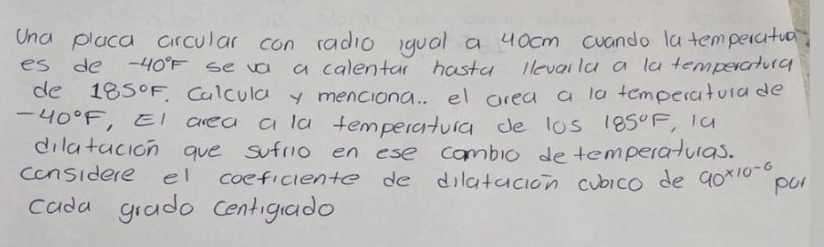 Una placa circular con radio igual a 40cm cuando la temperatura
es de -40°F se va a calentar hasta llevarla a la temperatura
de 185°F. Calcula y menciona.. el area a la temperatura de
-40°F, El area a la temperatura de los 185°F, la
dilatación que sufrio en ese cambio de temperaturas.
considere el coeficiente de dilatación cubico de 90×10-6 por
cada grado centigrado